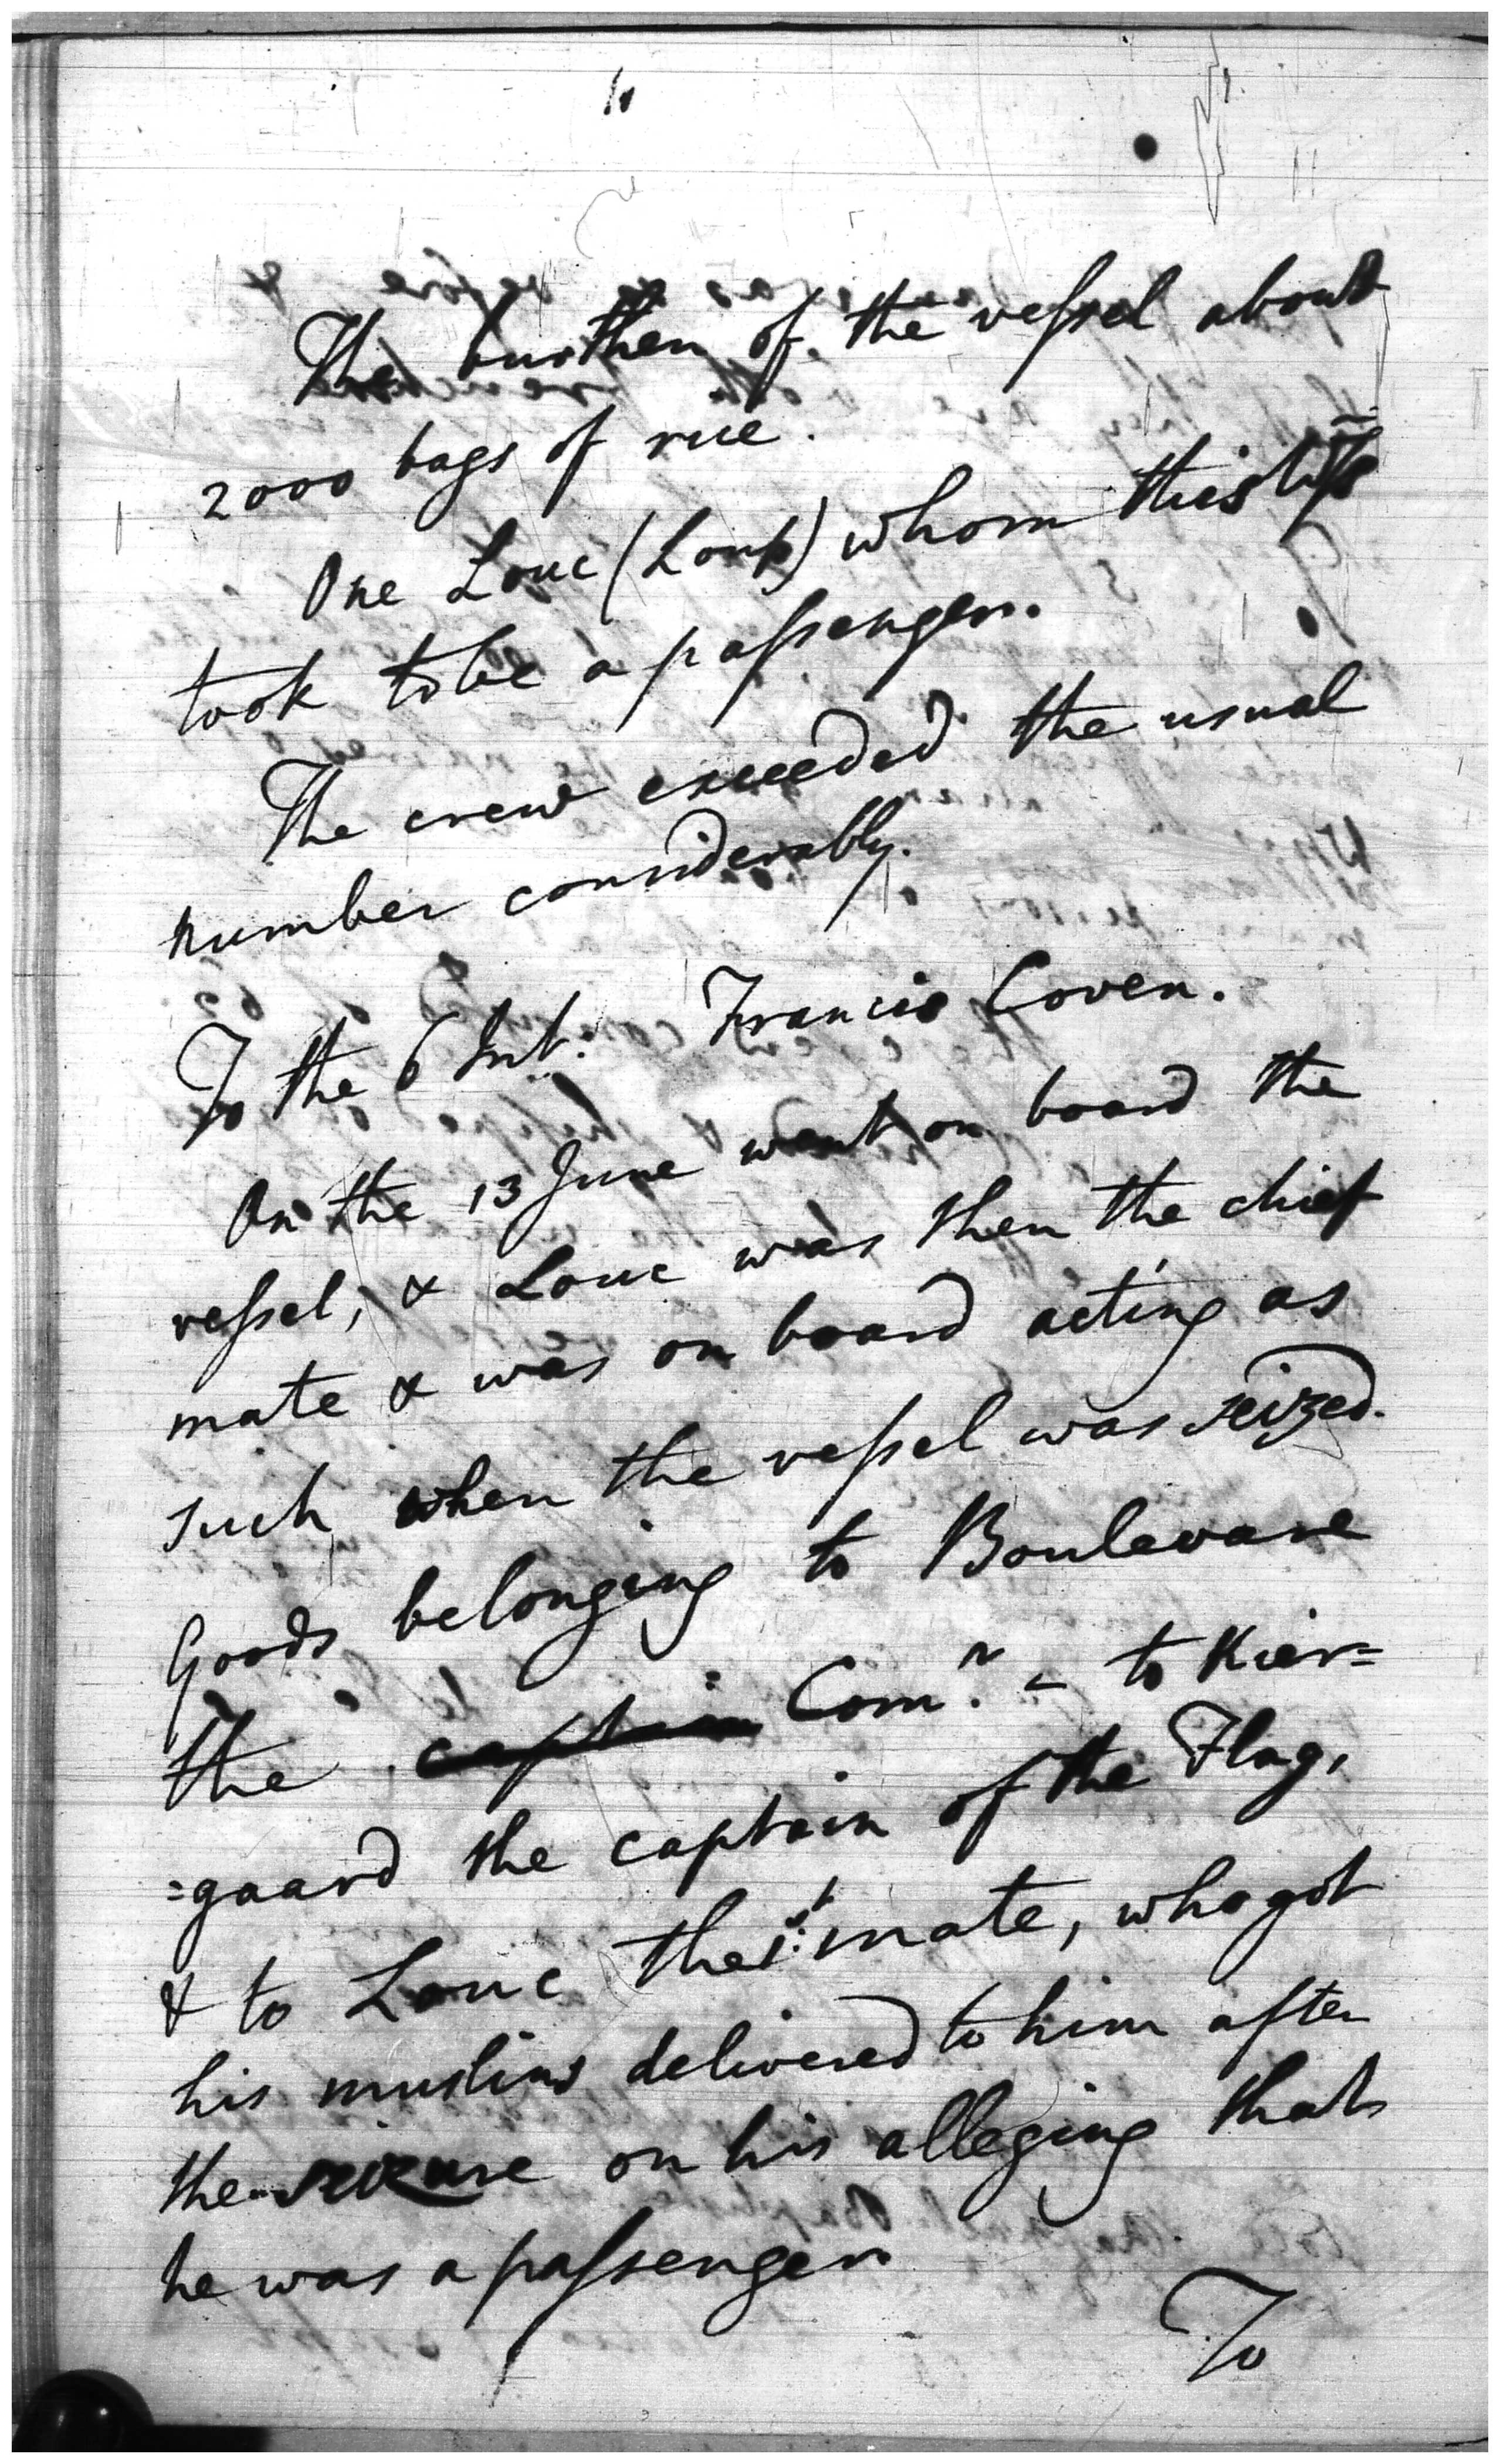 The burthen of the vessel about
2000 bags of rice.
One Louc (Loup) whom this
took to be a passenger.
The crew exceeded the usual
number considerably.
To the 6 Int: Francis Coven.
On the 13 June went on board the
vessel, & Louc was then the chief
mate & was on board acting as
such when the vessel was seized.
Goods belonging to Boulevare
the captain Com.r - to Kier=
=gaard the captain of the Flag,
& to Louc the 1st mate, who got
his muslins delivered to him after
the seizure on his alleging that
he was a passenger
To